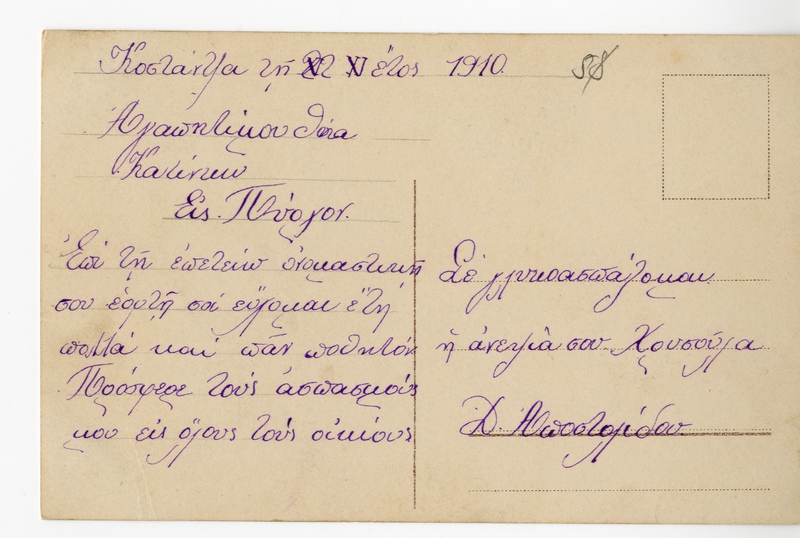 Κοστάντζα τῇ 22 XI ἔτος 1910.
58
Ἀγαπητίμου θεία
Κατίνκω
Εἰς Πύργον.
Ἐπί τῇ ἐπετείῳ ὀνομαστικῇ
σου ἑορτῇ σοί εὔχομαι ἔτη
πολλά καί πᾶν ποθητόν.
Πρόσφερε τούς ἀσπασμούς
μου εἰς ὅλους τούς οἰκίους
Σέ γλυκοασπάζομαι
ἡ ἀνεψιά σου Χρυσούλα
Δ. Ἀποστολίδου